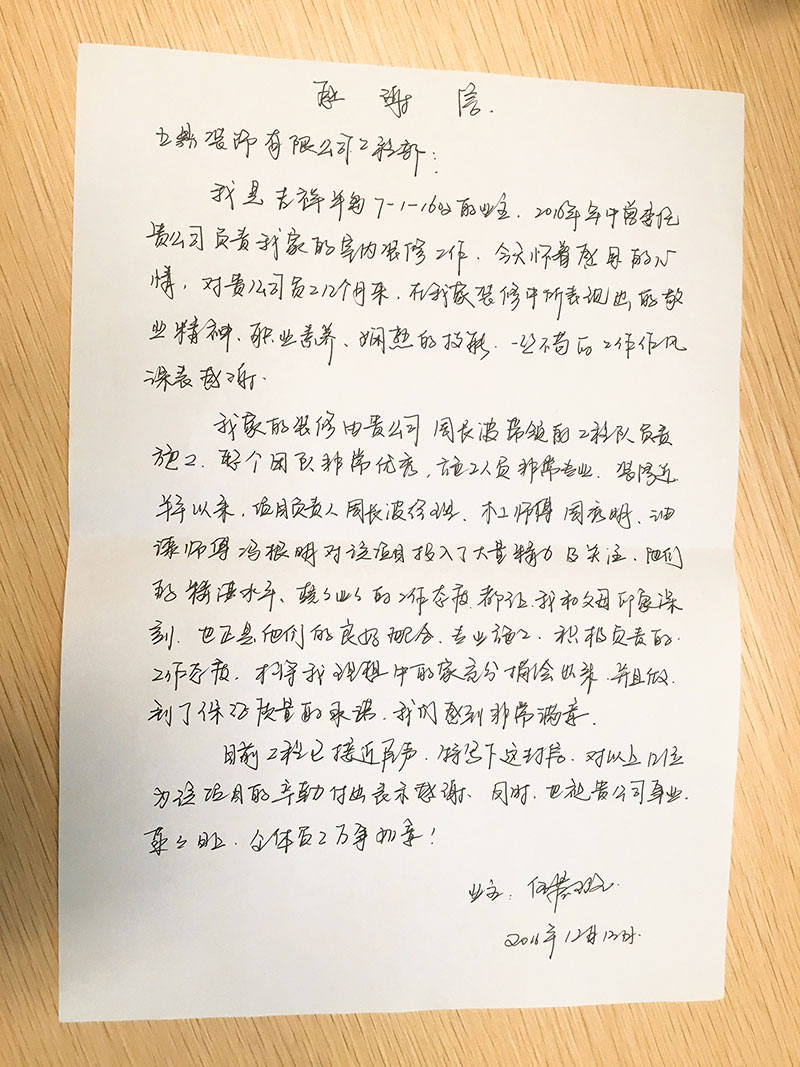 感谢信.
立鼎装饰有限公司工程部:
我是吉祥半岛7-1-1602的业主.2016年年中曾委任
贵公司负责我家的室内装修工作.今天怀着感恩的心
情,对贵公司员工12个月来,在我家装修中所表现出的敬
业精神、职业素养、娴熟的技能、一丝不苟的工作作风
深表感谢.
我家的装修由贵公司 周长波带领的工程队负责
施工.整个团队非常优秀,施工人员非常专业.装修近
半年以来,项目负责人周长波经理、木工师傅周 明、油
漆师傅冯根明对该项目投入了大量精力及关注.他们
的精湛水平、兢兢业业的工作态度都让我和父母印象深
刻.也正是他们的良好配合、专业施工、积极负责的
工作态度.才将我理想中的家充分描绘出来.并且做
到了保证质量的承诺.我们感到非常满意.
目前工程已接近尾声.特写下这封信.对以上几位
为该项目的辛勤付出表示感谢.同时.也祝贵公司事业
蒸蒸日上.全体员工万事如意!
业主:
2016年12月12日.